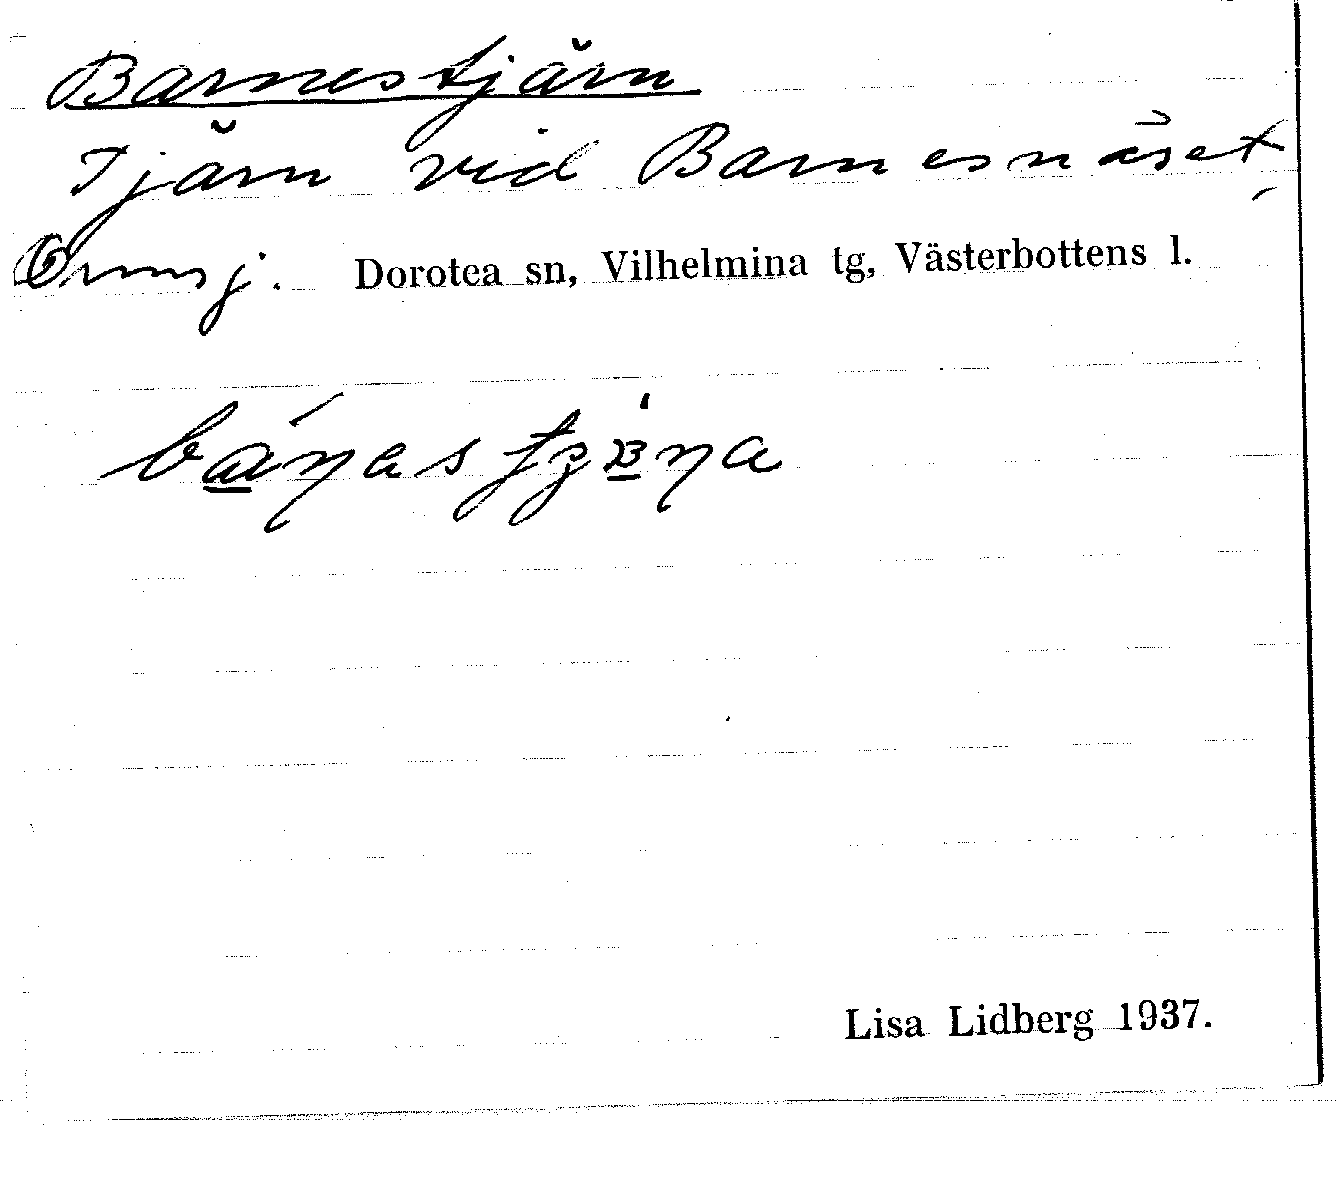 Barnestjärn
Tjärn vid Barnesnäset,
Ormsj. Dorotea sn, Vilhelmina tg, Västerbottens l.
Lisa Lidberg 1937.